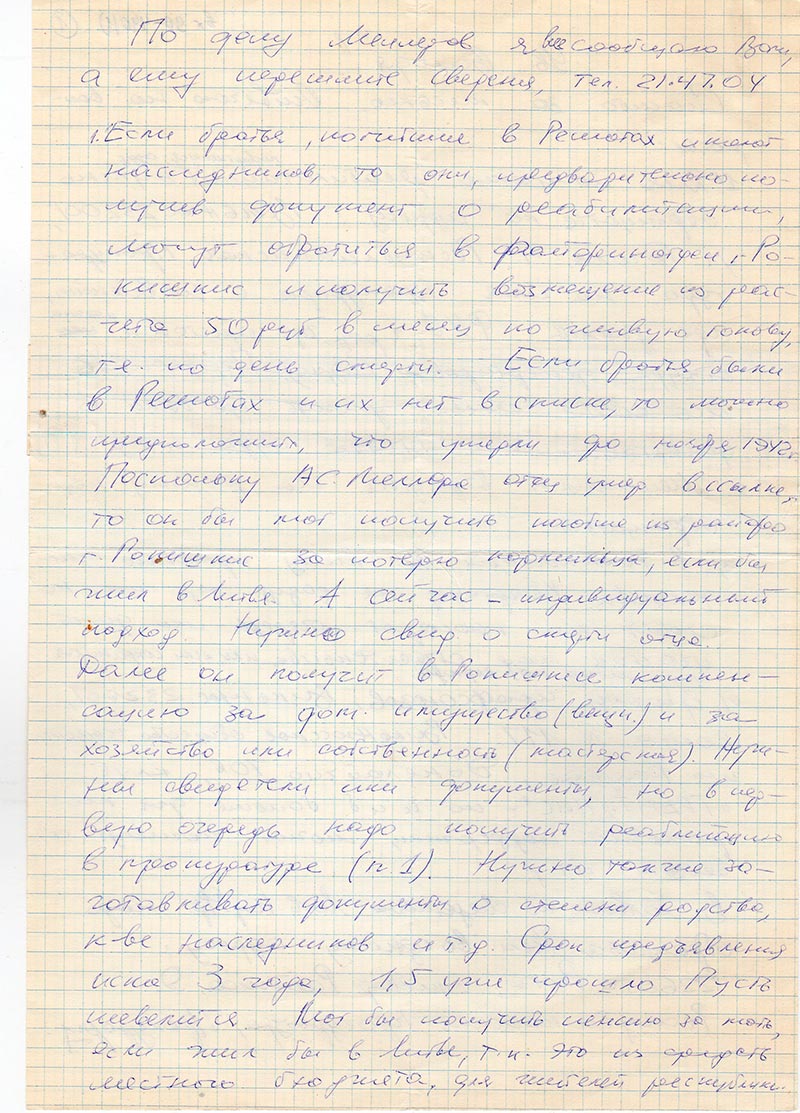 По делу Меллеров я все сообщаю Вам,
а ему перешлите сведения, тел. 21.47.04
1. Если братья, погибшие в Решотах имеют
наследников, то они, предварительно по-
лучив документ о реабилитации,
могут обратиться в г. Ро-
кишкис и получить возмещение из рас-
чета 50 руб в месяц на живую голову,
т.е. по день смерти. Если братья были
в Решотах и их нет в списке, то можно
предположить, что умерли до ноября 1942г.
Поскольку А.С. Меллера отец умер в ссылке,
то он бы мог получить пособие из
г. Рокишкис за потерю кормильца, если бы
жил в Литве. А сейчас – индивидуальный
подход. Нужно свид о смерти отца.
Далее он получит в Рокишкисе компен-
сацию за дом. имущество (вещи.) и за
хозяйство или собственность (мастерская). Нуж-
ны свидетели или документы, но в пер-
вую очередь надо получить реабилитацию
в прокуратуре (п 1). Нужно также за-
готавливать документы о степени родства,
к-ве наследников и т.д. Срок предъявления
иска 3 года, 1,5 уже прошло Пусть
шевелится. Мог бы получить пенсию за мать,
если жил бы в Литве, т.к. это из средств
местного бюджета, для жителей республики.